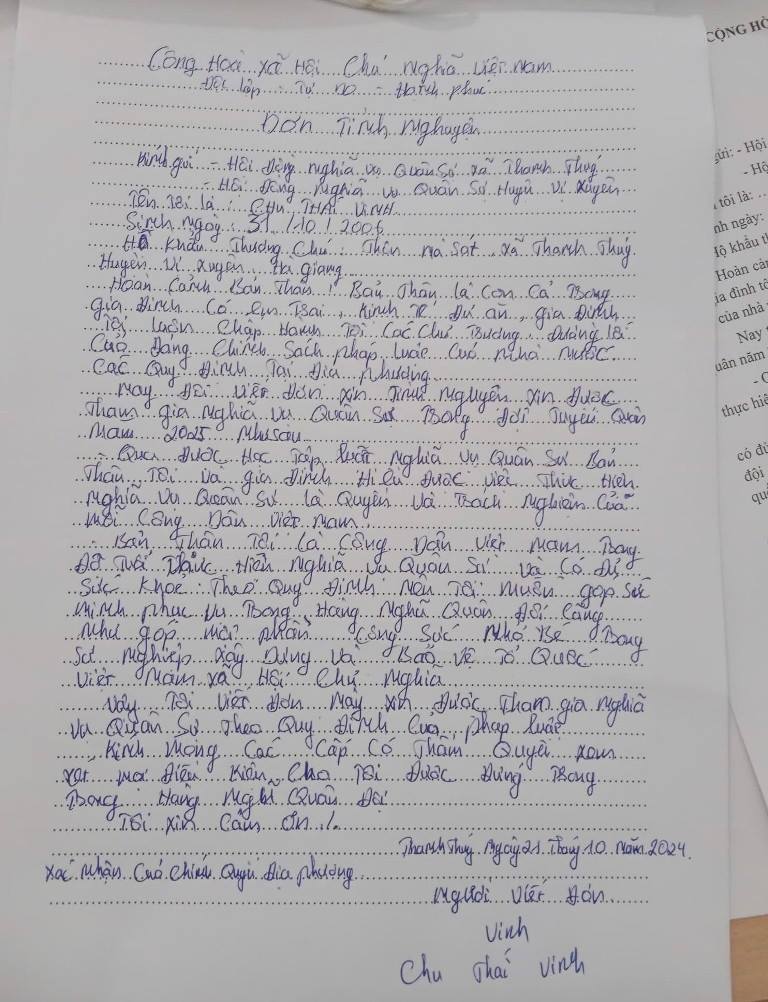 Cộng Hoà xã Hội Chủ nghĩa Việt Nam
Độc lập - Tự Do - Hạnh phúc
Đơn Tình Nghuyện
Kính gửi - Hội đồng nghĩa vụ Quân Sự xã Thanh Thuỷ
- Hội đồng nghĩa vụ Quân Sự Huyện Vị Xuyên
Tên Tôi là : CHU THÁI VINH
Sinh ngày : 31 / 10 / 2006
Hộ Khẩu Thường Chú : Thôn Nà Sát xã Thanh Thuỷ
Huyện Vị Xuyên Hà Giang
Hoàn Cảnh Bản Thân : Bản Thân là Con Cả Trong
gia đình Có em Trai, Kinh Tế đủ ăn, gia đình
Tôi luôn Chấp Hành Tối Các Chủ Trương, Đường lối
Của Đảng Chính Sách pháp luật Của Nhà Nước
Các Quy định Tại địa phương
Nay Tôi viết đơn xin Tình nguyện xin được
Tham gia Nghĩa Vụ Quân Sự Trong đợt Tuyển Quân
Năm 2025 Như sau
- Qua được Học Tập luật Nghĩa Vụ Quân Sự Bản
Thân Tôi và gia đình Hiểu được việc Thực Hiện
Nghĩa Vụ Quân Sự là Quyền Và Trách Nghiệm Của
Mỗi Công Dân Việt Nam
- Bản Thân Tôi là Công Dân Việt Nam Trong
Độ Tuổi Thực Hiện Nghĩa Vụ Quân Sự và Có đủ
Sức Khoẻ Theo Quy định Nên Tôi Muốn góp Sức
Mình phục Vụ Trong Hàng Nghũ Quân đội Cũng
Như góp một phần Công Sức Nhỏ Bé Trong
Sự Nghiệp Xây Dựng Và Bảo Vệ Tổ Quốc
Việt Nam xã Hội Chủ Nghĩa
Vậy Tôi Viết đơn Này xin được Tham gia Nghĩa
Vụ Quân Sự Theo Quy định Của pháp luật
Kính Mong Các Cấp Có Thẩm Quyền xem
xét Mọi điều Kiện Cho Tôi Được đứng Trong
Trong Hàng Nghũ Quân đội
Tôi xin Cảm ơn ./.
Thanh Thuỷ Ngày 21 Tháng 10 Năm 2024
Xác Nhận Của Chính Quyền địa phương
Người Viết đơn
Vinh
Chu Thái Vinh
CỘNG HÒ
gửi: - Hội
- Hộ
tôi là: ..
nh ngày:
Hộ khẩu th
Hoàn cản
ia đình tô
của nhà
Nay
uân năm
thực hiệ
có đủ
đội